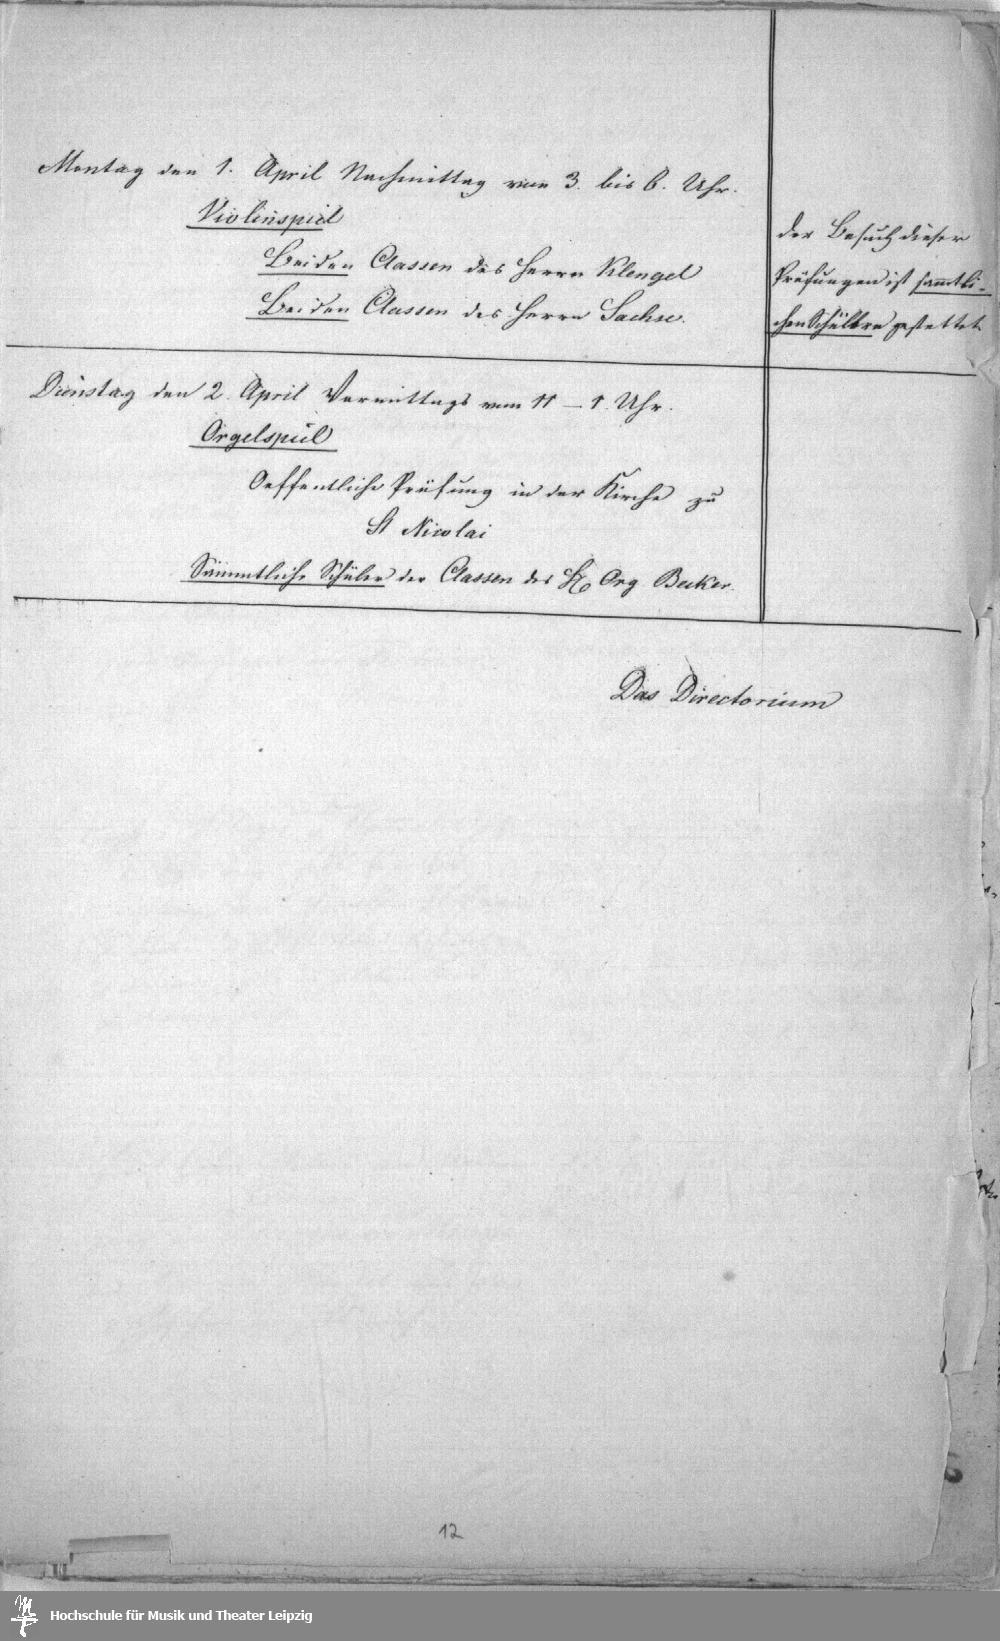 Montag den 1. April Nachmittag von 3. bis 6. Uhr.
Violinspiel
Beiden Classen des Herrn Klengel
Beiden Classen des Herrn Sachse.
Der Besuch dieser
Prüfungen ist sammtli-
chen Schülern gestattet
Dienstag den 2. April Vormittags von 11 – 1. Uhr.
Orgelspiel
Oeffentliche Prüfung in der Kirche zu
St Nicolai
Sämmtliche Schüler der Classen des H Org Becker.
Das Directorium
12
Hochschule für Musik und Theater Leipzig